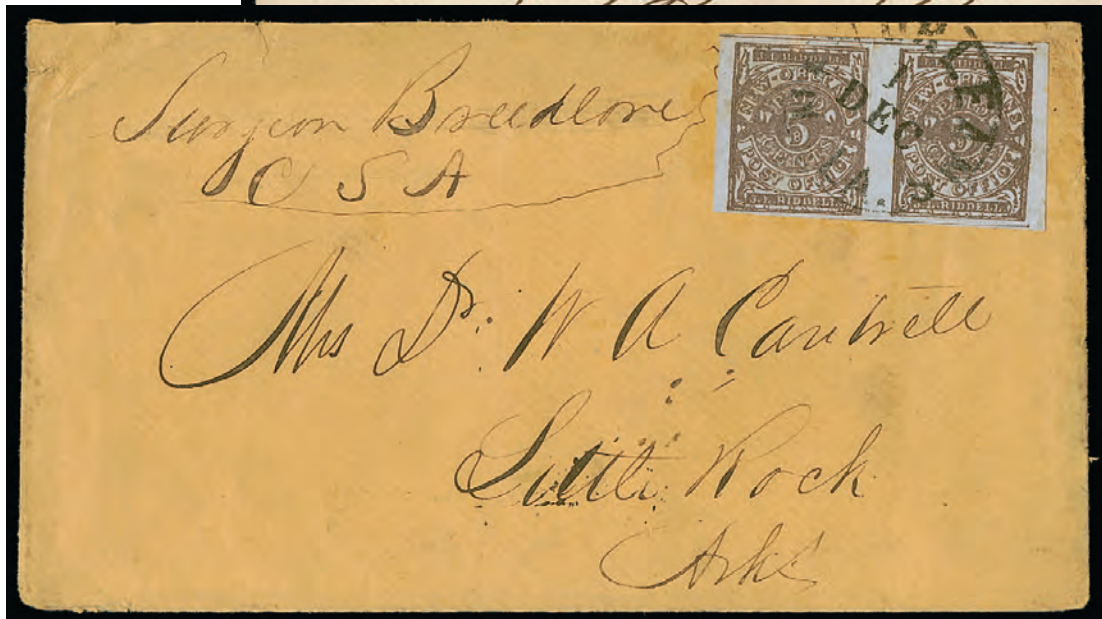 Surgeon Breedlove
C S A
J.L. RIDDELL
NEW-ORLEANS
P.O. PAID
5
CENTS
POST OFFICE
J.L. RIDDELL
NEW-ORLEANS
P.O. PAID
5
CENTS
POST OFFICE
J.L. RIDDELL
1
DEC
LA.
Mrs Dr. W A Cantrell
Little Rock
Arks